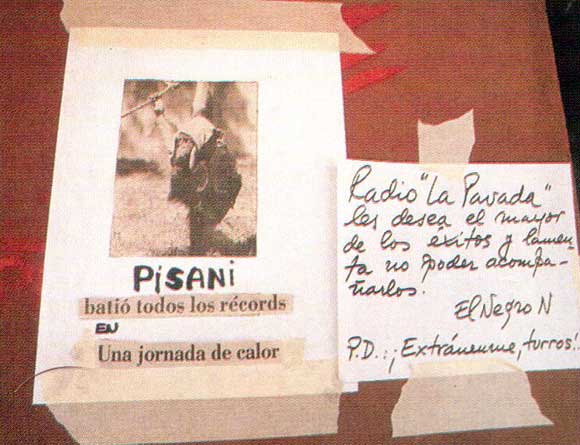 PiSANi
batió todos los récords
EN
Una jornada de calor
Radio "La Pavada"
les desea el mayor
de los éxitos y lamen-
ta no poder acompa-
ñarlos.
El Negro N
P.D.: ¡Extráñenme, turros!